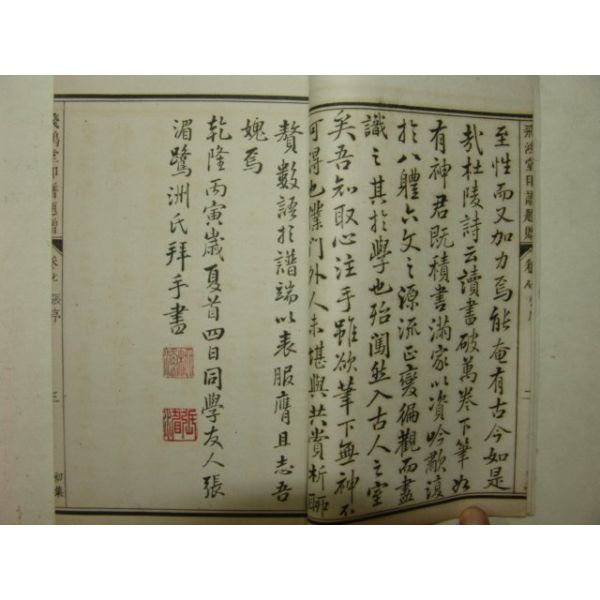 飛鴻堂印譜題贈
二
至性而又加力焉能奄有古今如是
哉杜陵詩云讀書破萬卷下筆如
有神君既積書滿家以資吟歗復
於八體六文之源流正變徧觀而盡
識之其於學也殆闖然入古人之室
矣吾知取心注手雖欲筆下無神不
可得也業門外人未堪與共賞析聊
贅數語於譜端以表服膺且志吾
媿焉
乾隆丙寅歲夏首四日同學友人張
湄鷺洲氏拜手書
張湄
飛鴻堂印譜題贈 卷七 張序 三 初集